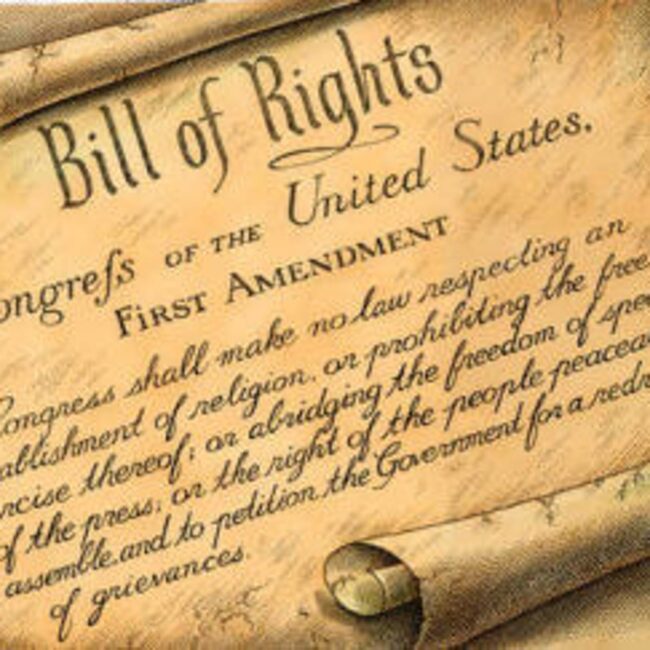 Bill of Rights
ongreſs OF THE United States.
FIRST AMENDMENT
Congress shall make no law respecting an
ablishment of religion, or prohibiting the free
rcise thereof; or abridging the freedom of spe
of the press; or the right of the people peacea
assemble, and to petition the Government for a redr
of grievances.